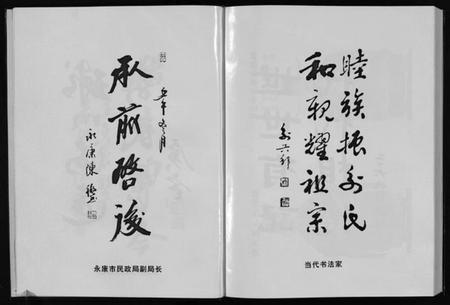 承前啓後
永康陳
永康市民政局副局长
睦族振 氏
和親耀祖宗
当代书法家